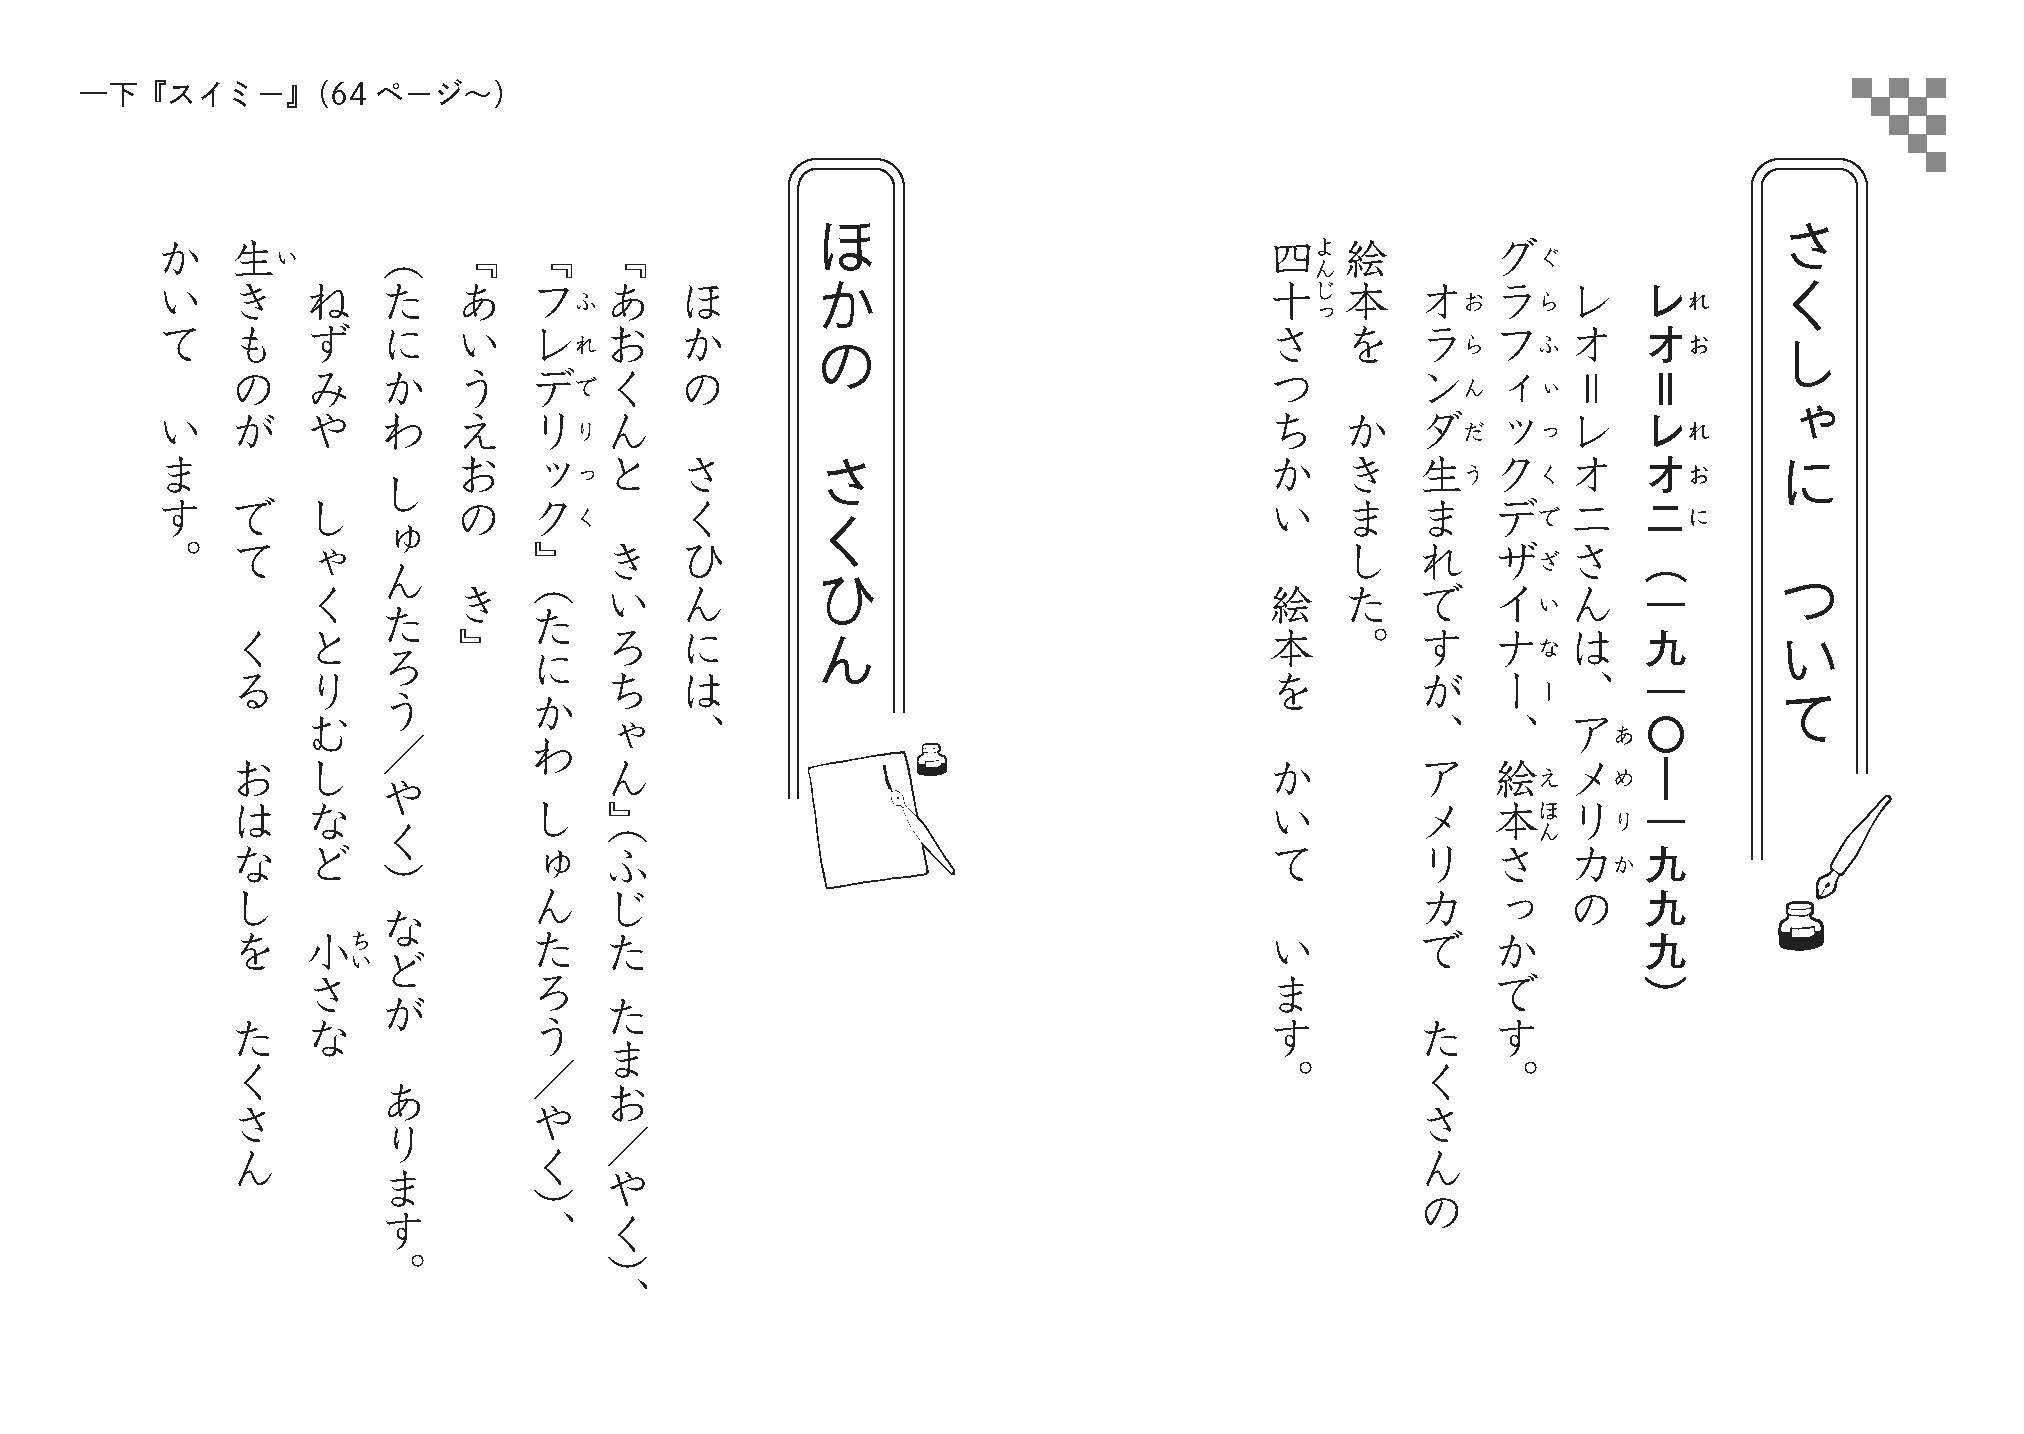 一下『スイミー』（64ページ～）
さくしゃに　ついて
レオ＝レオニ（一九一〇―一九九九）
レオ＝レオニさんは、アメリカの
グラフィックデザイナー、絵本さっかです。
オランダ生まれですが、アメリカで　たくさんの
絵本を　かきました。
四十さつちかい　絵本を　かいて　います。
ほかの　さくひん
ほかの　さくひんには、
『あおくんと　きいろちゃん』（ふじた たまお／やく）、
『フレデリック』（たにかわ しゅんたろう／やく）、
『あいうえおの　き』
（たにかわ しゅんたろう／やく）などが　あります。
ねずみや　しゃくとりむしなど　小さな
生きものが　でて　くる　おはなしを　たくさん
かいて　います。